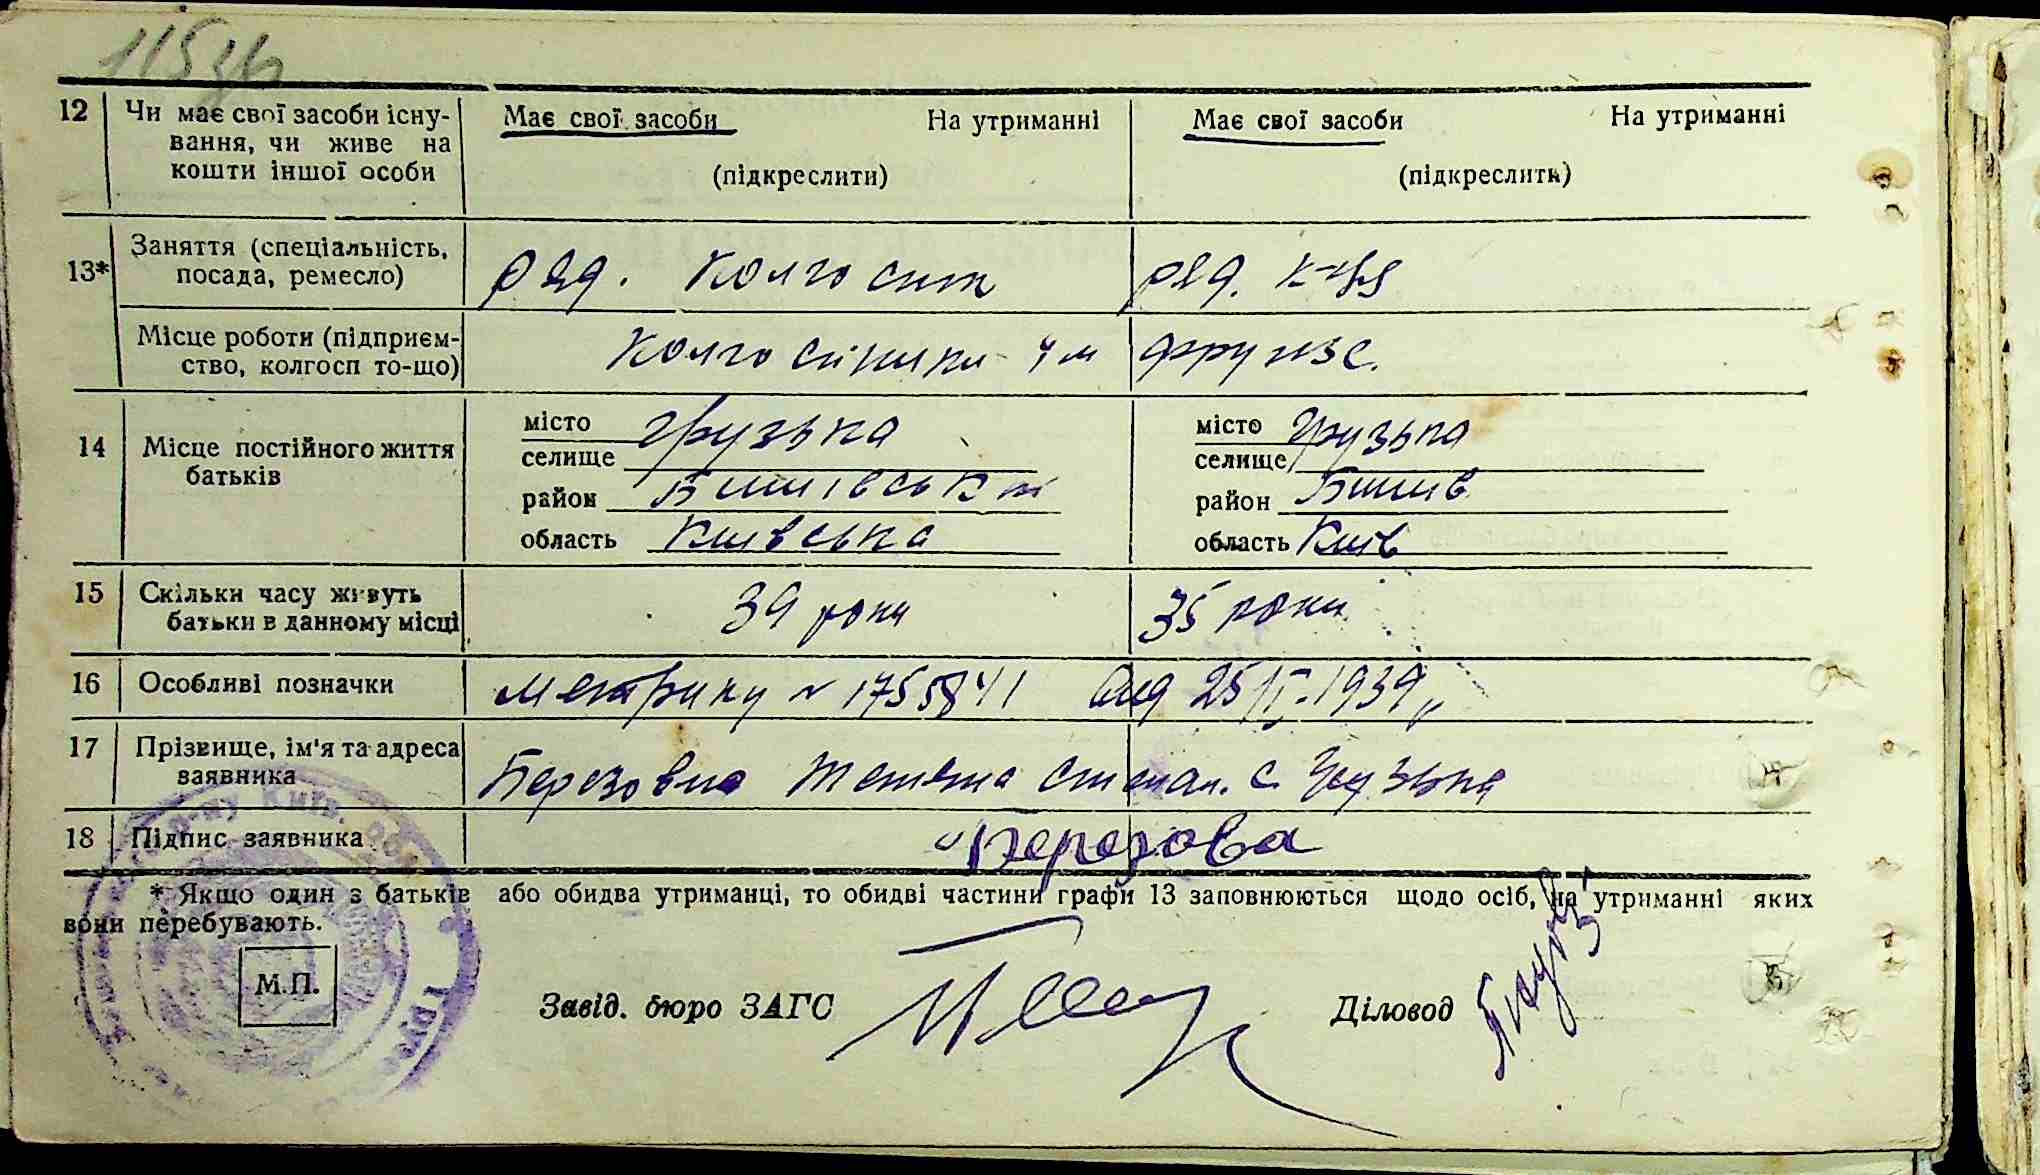 12 Чи має свої засоби існу- Має свої засоби На утриманні Має свої засоби На утриманні
вання, чи живе на
кошти іншої особи (підкреслити) (підкреслить)
13* Заняття (спеціальність, посада, ремесло) ряд. колгоспн ряд. к-ця
Місце роботи (підприєм- Колгоспника ім Фрунзе.
ство, колгосп то-що)
14 Місце постійного життя батьків
місто Грузька місто Грузька
селище селище
район Бишівськи район Бишів
область Київська область Київ
15 Скільки часу живуть 39 роки 35 роки
батьки в данному місці
16 Особливі позначки метрику № 1755841 від 25/ 1939
17 Прізвище, ім'я та адреса
заявника Березовна Тетяна Степан. с. Грузька
18 Підпис заявника Березова
* Якщо один з батьків або обидва утриманці, то обидві частини графи 13 заповнюються щодо осіб, на утриманні яких
вони перебувають.
М.П.
Завід. бюро ЗАГС Діловод